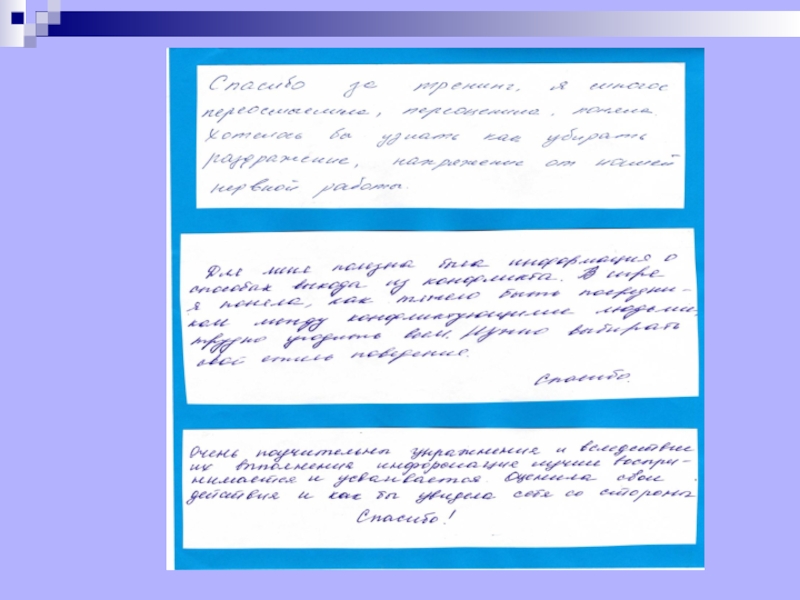 Спасибо за тренинг, я многое
переосмыслила, переоценила, поняла.
Хотелось бы узнать как убирать
раздражение, напряжение от нашей
нервной работы.
Для меня полезна была информация о
способах выхода из конфликта. В игре
я поняла, как тяжело быть посредни-
ком между конфликтующими людьми,
трудно угодить всем. Нужно выбирать
свой стиль поведения.
Спасибо.
Очень поучительны упражнения и вследствие
их выполнения информация лучше воспри-
нимается и усваивается. Оценила свои
действия и как бы увидела себя со стороны
Спасибо!